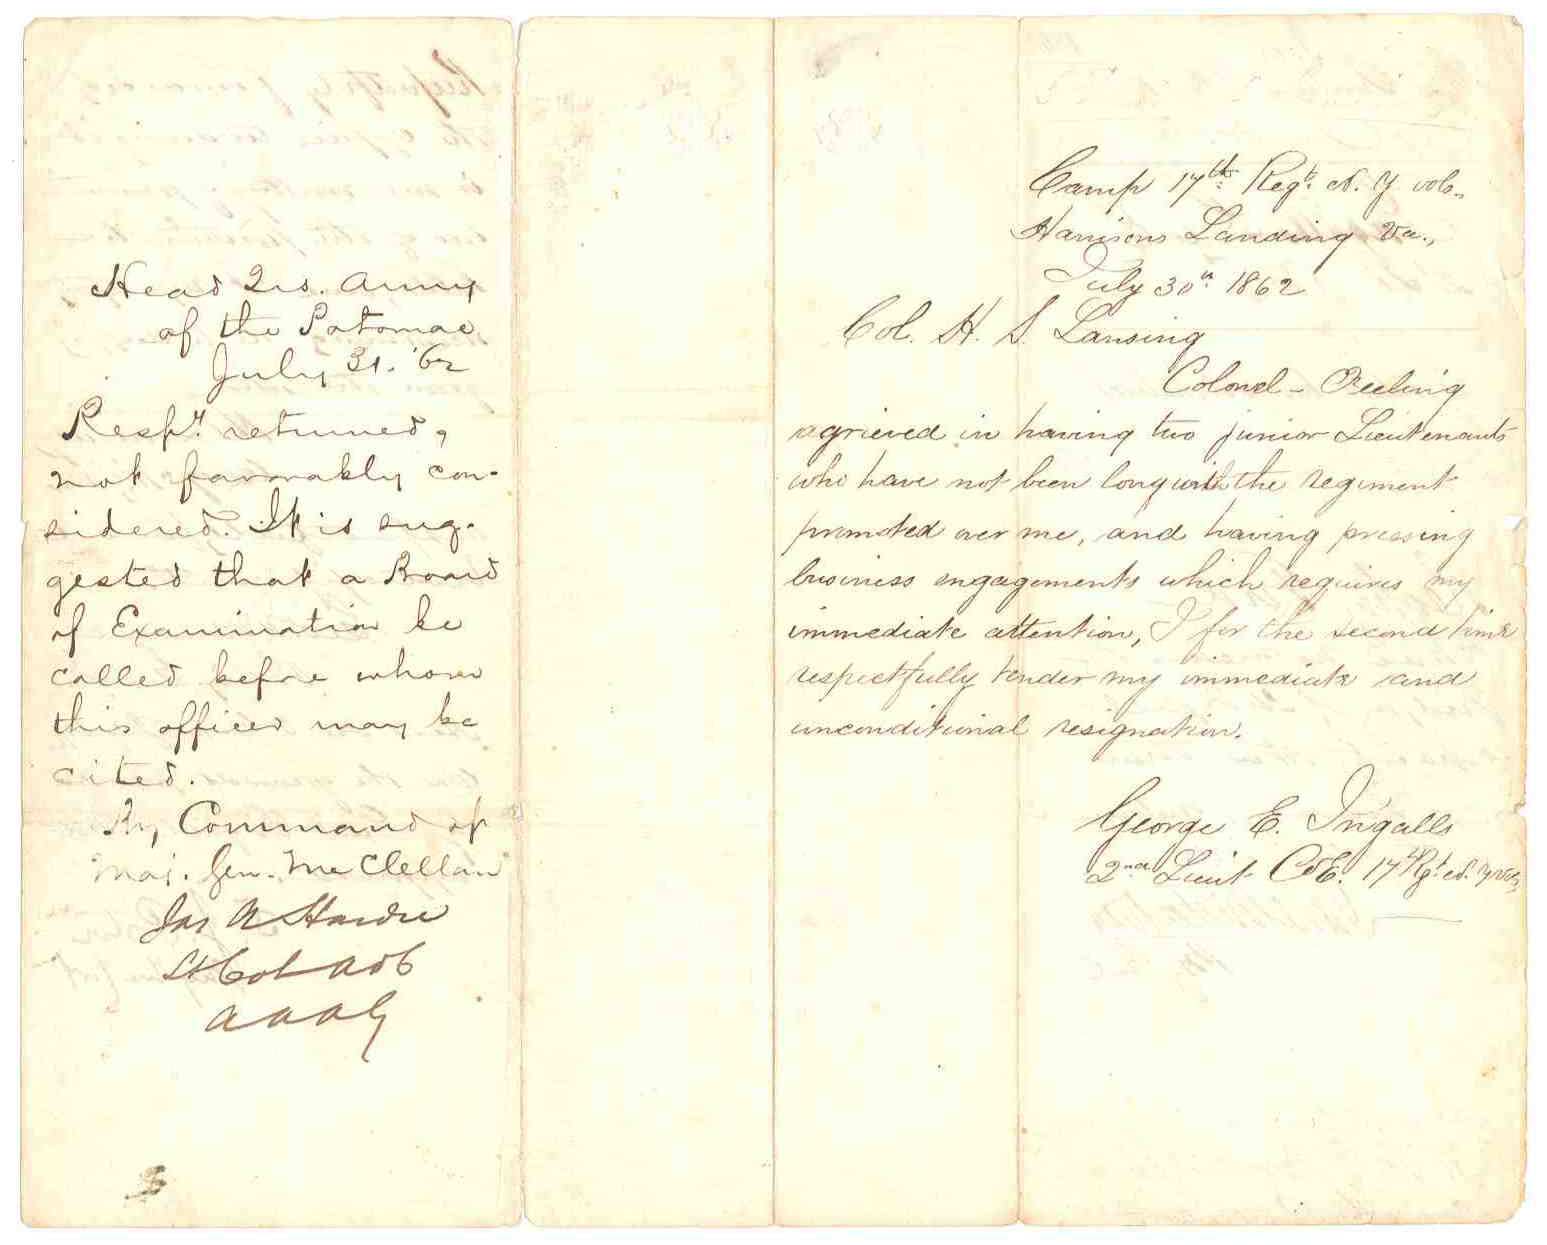 Head Qrs. Army
of the Potomac
July 31. '62
Respy. returned,
not favorably con-
sidered. It is sug-
gested that a Board
of Examination be
called before whom
this officer may be
cited.
By Command of
Maj. Gen. McClellan
Jas A Hardie
Lt Col ADC
AAAG
Camp 17th. Regt. N. Y vols.,
Harrisons Landing Va.,
July 30th 1862
Col. H. S. Lansing
Colonel - Feeling
agrieved in having two junior Lieutenants
who have not been long with the regiment
promoted over me, and having pressing
business engagements which requires my
immediate attention, I for the second time
respectfully tender my immediate and
unconditional resignation.
George E. Ingalls
2nd Lieut Co E. 17th Rgt N. Y Vols